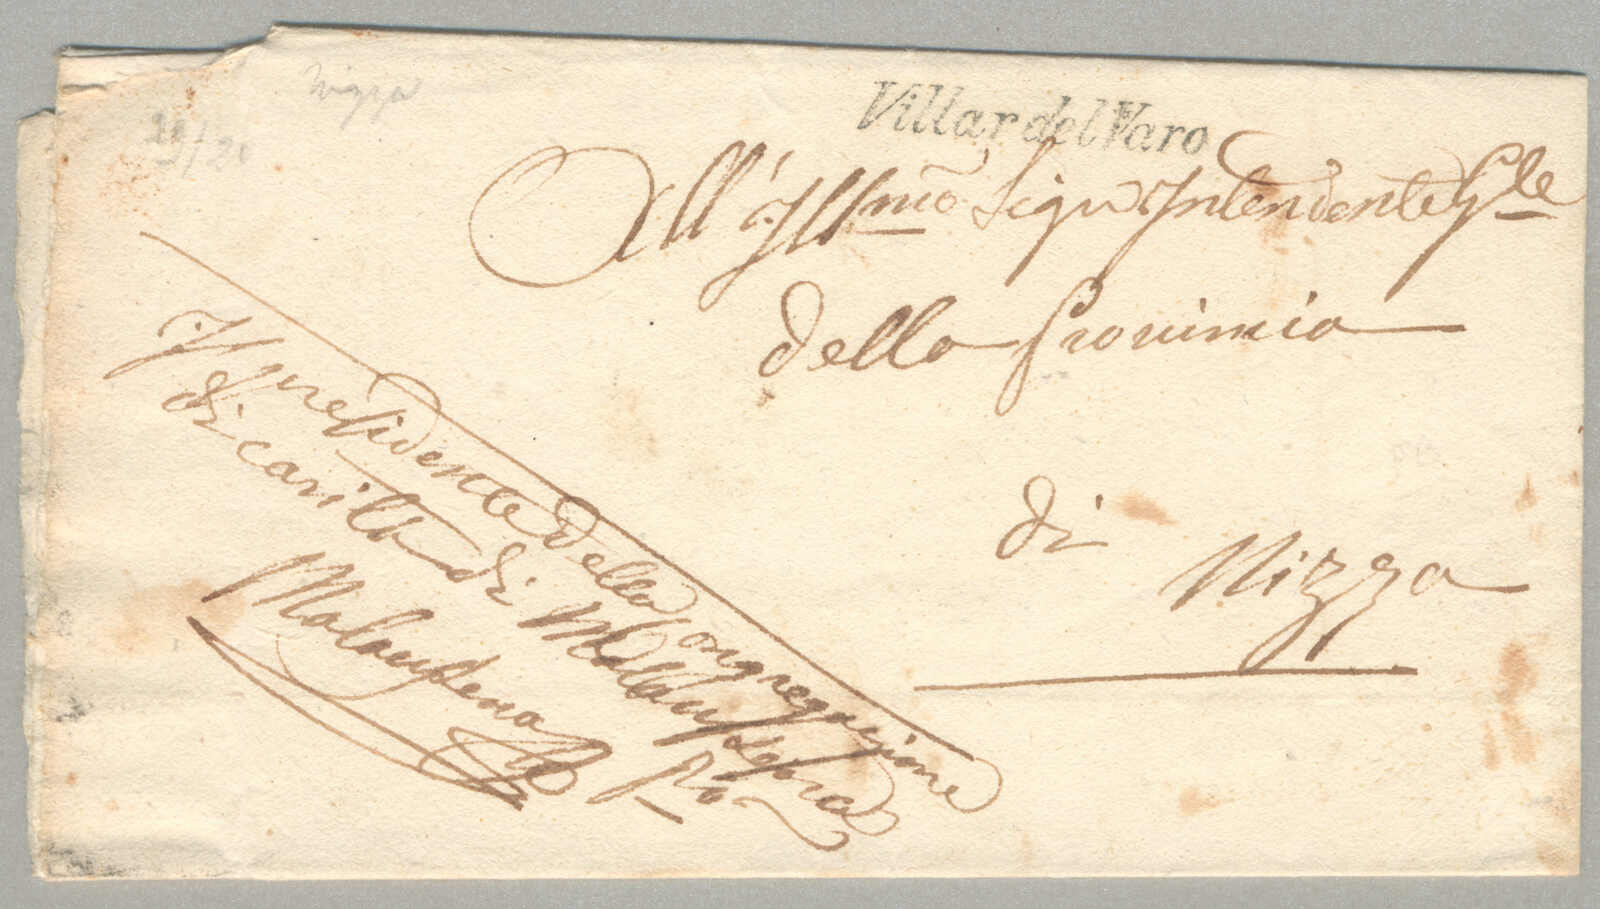 Nizza
Villar del Varo
All' Ill.mo Sig.r Intendente G.le
della Provincia
di
Nizza
Il presidente della Congregazione
di carità di Malaussena
Malaussena